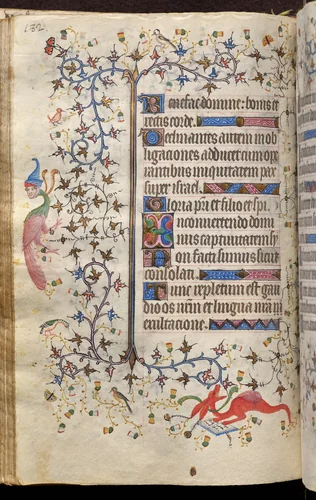 Benefac domine: bonis et
rectis corde.
Declinantes autem in ob
ligaciones adducet cum ope
rantibus iniquitatem pax
super israel.
Gloria patri et filio et spi.
In convertendo domi
nus captivitatem sy
on facti sumus sicut
consolati.
Tunc repletum est gau
dio os nostrum et lingua nostra in
exultacione.